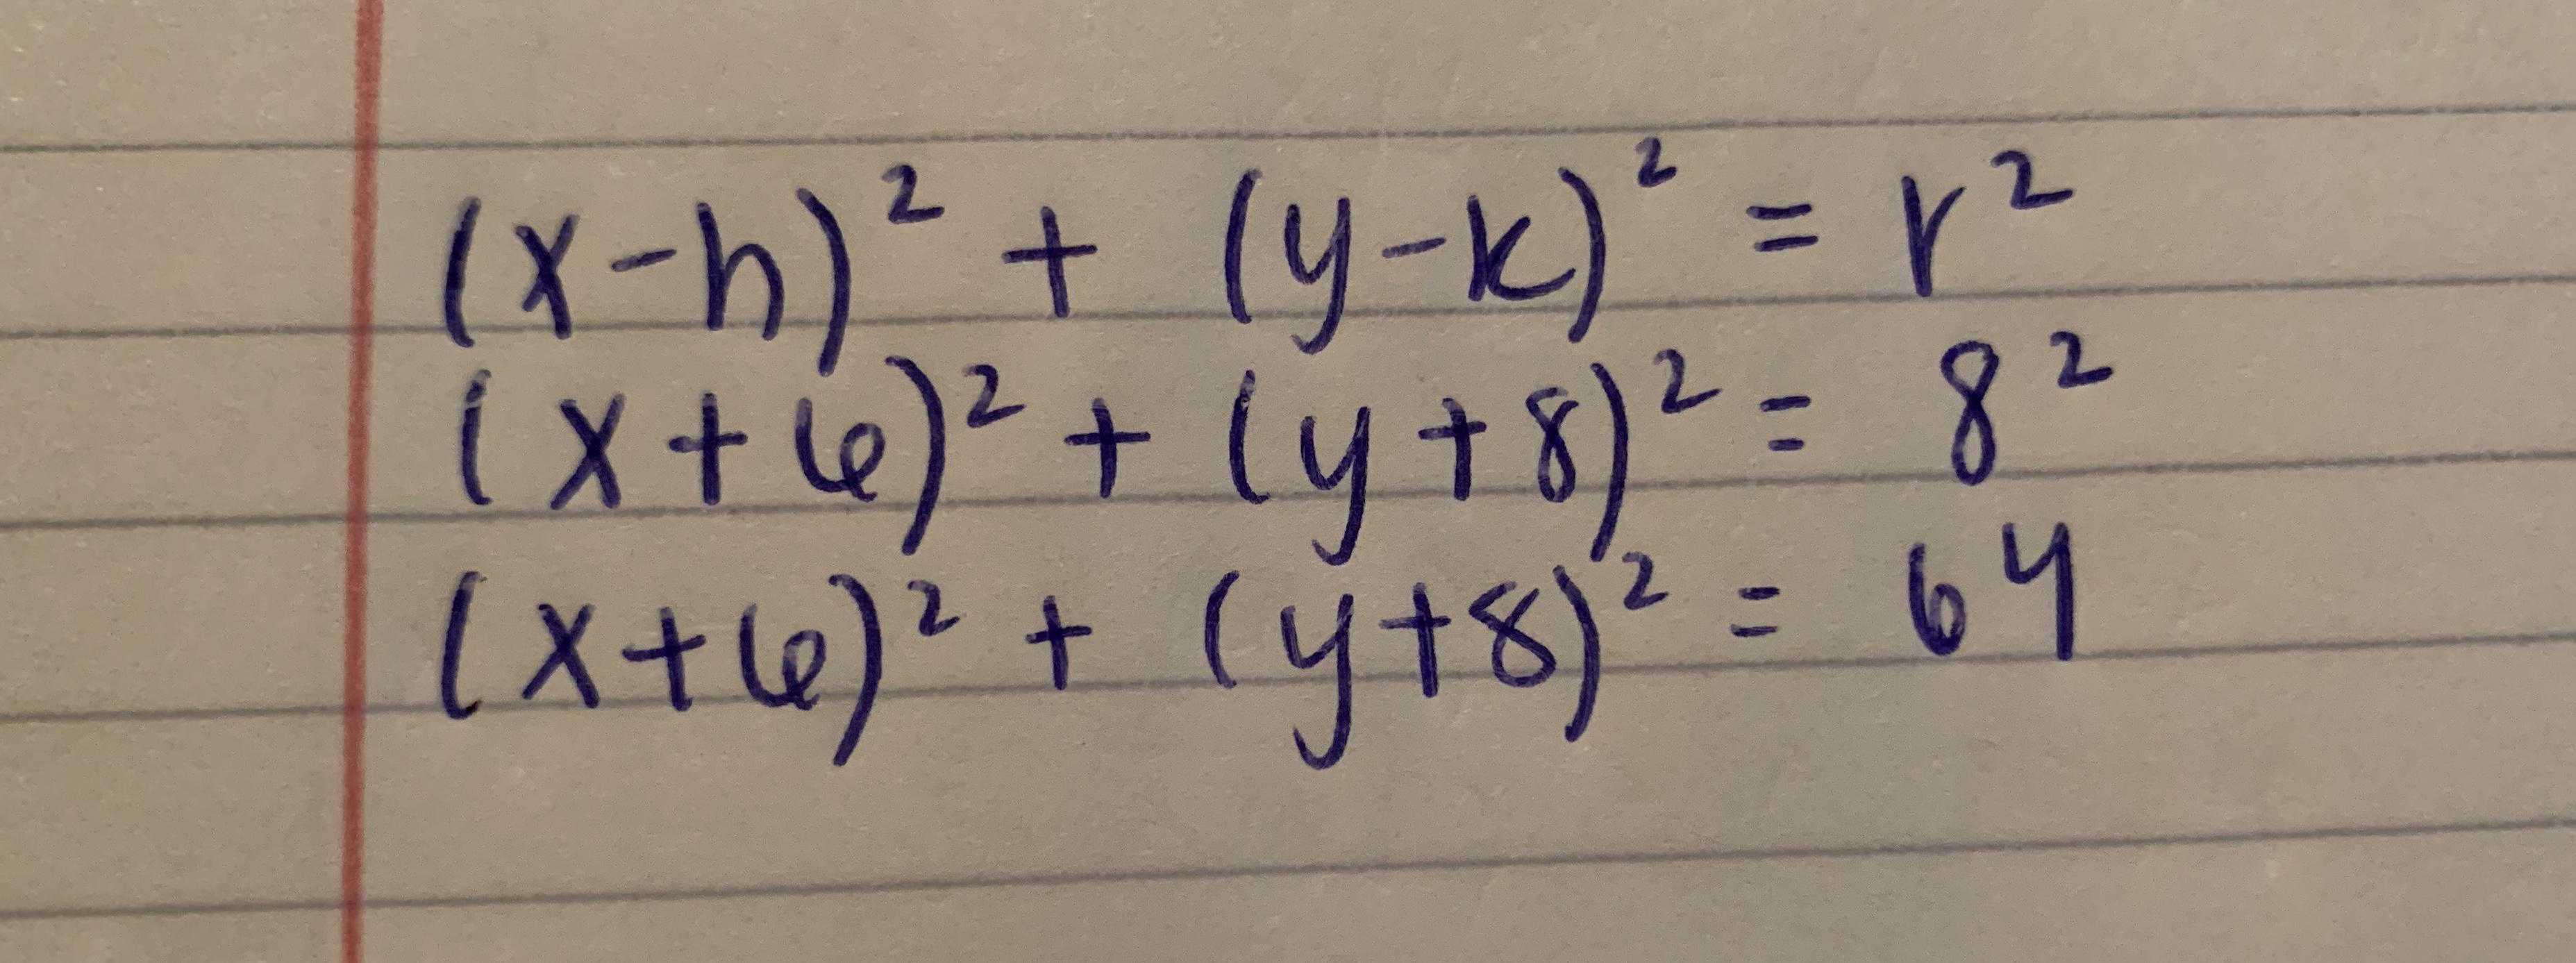 (x-h)² + (y-k)² = r²
(x+6)² + (y+8)² = 8²
(x+6)² + (y+8)² = 64